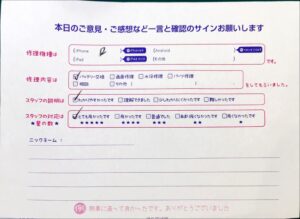 本日のご意見・ご感想など一言と確認のサインお願いします
修理機種は
iPhone
Android
iPad
その他
です。
修理内容は
バッテリー交換 画面修理 水没修理 パーツ修理
その他
をしてもらいました。
スタッフの説明は
わかりやすかったです 理解できました 少しわかりにくかったです 難しかったです
スタッフの対応は
★星の数★
とても良かったです 良かったです 普通でした あまり良くなかったです 良くなかったです
★★★★★ ★★★★ ★★★ ★★ ★
ニックネーム:
無事に直って良かったです。ありがとうございました